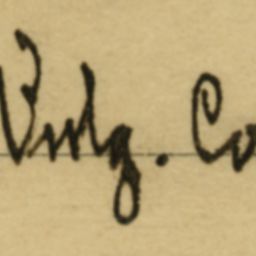 Vulg. Co